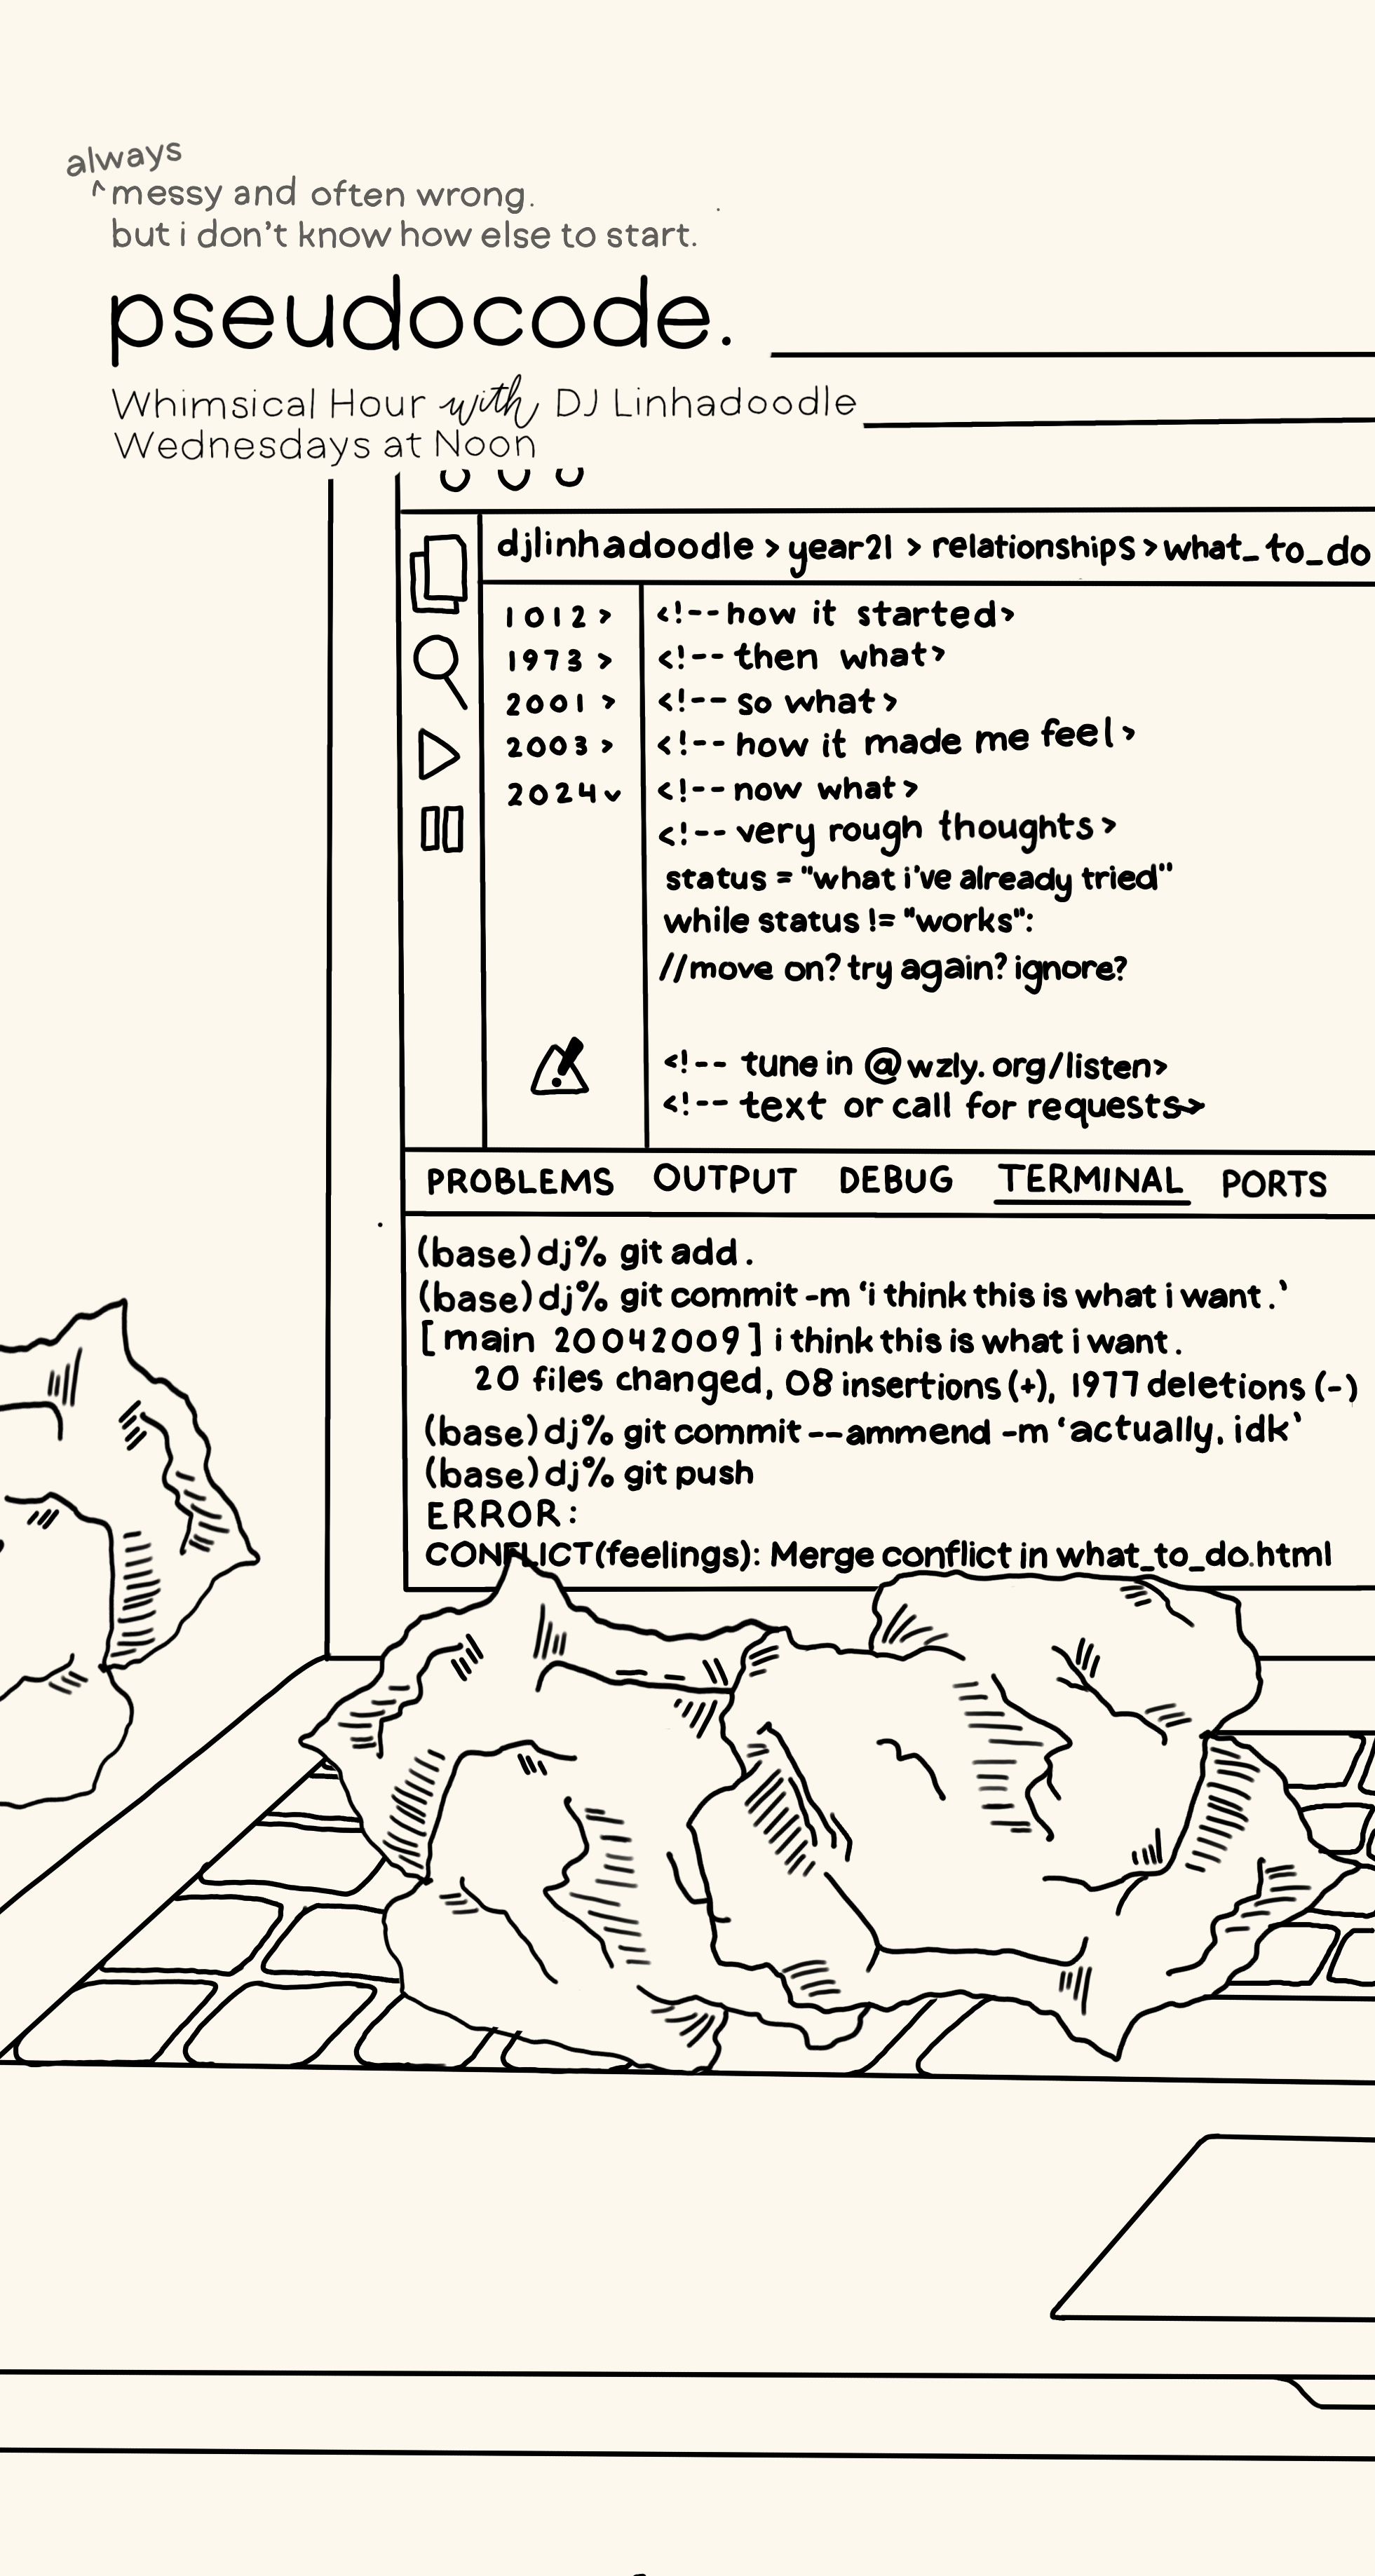 always
^messy and often wrong.
but i don't know how else to start.
pseudocode.
Whimsical Hour with DJ Linhadoodle
Wednesdays at Noon
djlinhadoodle > year21 > relationships > what_to_do
1012 > <!-- how it started>
1973 > <!-- then what>
2001 > <!-- so what>
2003 > <!-- how it made me feel>
2024 v <!-- now what>
<!-- very rough thoughts>
status = "what i've already tried"
while status != "works":
//move on? try again? ignore?
<!-- tune in @wzly.org/listen>
<!-- text or call for requests>
PROBLEMS OUTPUT DEBUG TERMINAL PORTS
(base) dj% git add .
(base) dj% git commit -m 'i think this is what i want.'
[main 20042009] i think this is what i want.
20 files changed, 08 insertions (+), 1977 deletions (-)
(base) dj% git commit --ammend -m 'actually, idk'
(base) dj% git push
ERROR:
CONFLICT(feelings): Merge conflict in what_to_do.html